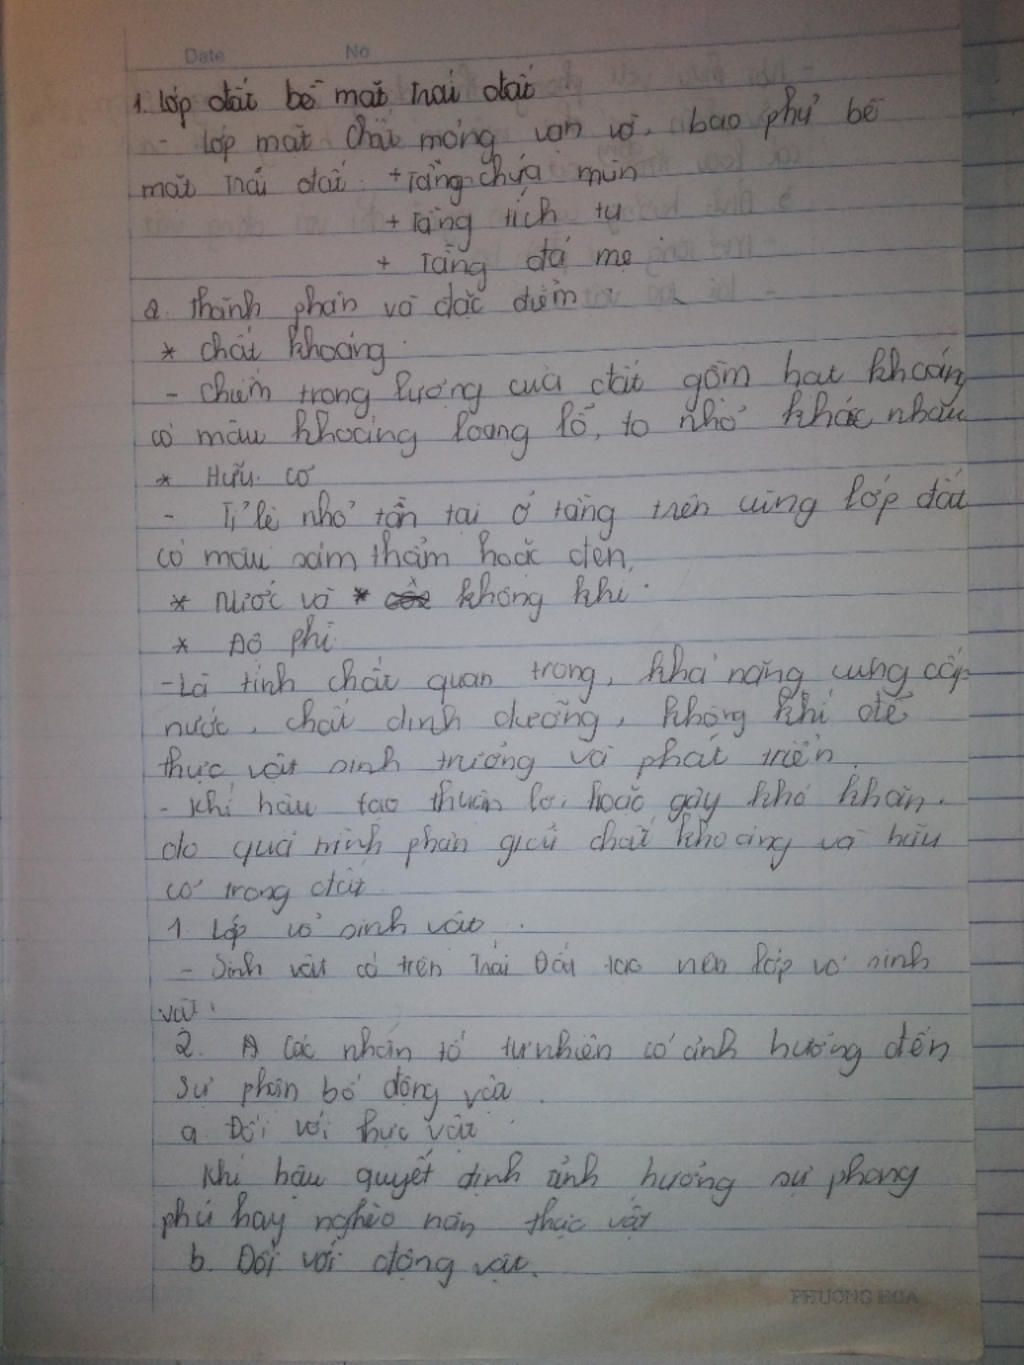 Date No
1. Lớp đất bề mặt trái đất
- Lớp mặt chất mỏng vạn vỡ, bao phủ bề
mặt trái đất: + Tầng chứa mùn
+ Tầng tích tụ
+ Tầng đá mẹ
2. Thành phần và đặc điểm
* Chất khoáng
- Chiếm trọng lượng của đất gồm hạt khoáng
có màu khoáng loang lổ, to nhỏ khác nhau
* Hữu cơ
- Tỉ lệ nhỏ tồn tại ở tầng trên cùng lớp đất
có màu xám thẫm hoặc đen,
* Nước và * không khí
* Độ phì
- Là tính chất quan trọng, khả năng cung cấp
nước, chất dinh dưỡng, không khí để
thực vật sinh trưởng và phát triển.
- Khí hậu tạo thuận lợi hoặc gây khó khăn.
do quá trình phân giải chất khoáng và hữu
cơ trong đất
1. Lớp vỏ sinh vật.
- Sinh vật có trên Trái Đất tạo nên lớp vỏ sinh
vật.
2. Các nhân tố tự nhiên có ảnh hưởng đến
sự phân bố động vật.
a. Đối với thực vật
Khí hậu quyết định ảnh hưởng sự phong
phú hay nghèo nàn thực vật
b. Đối với động vật.
PHUONG HOA